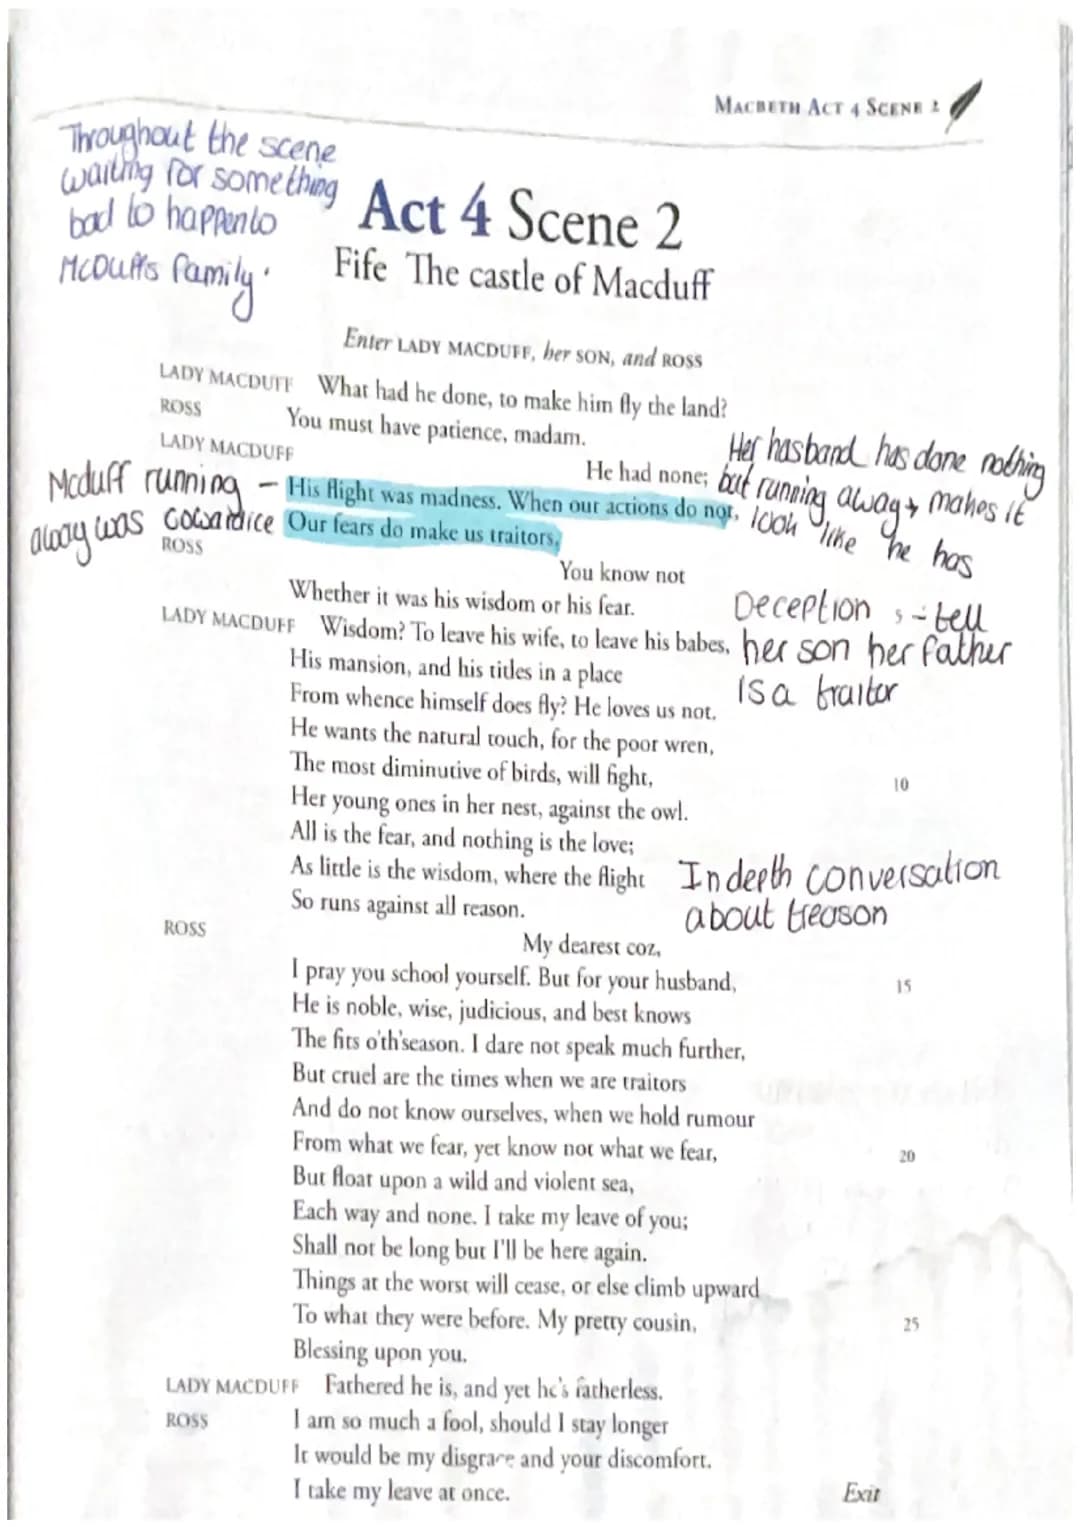 MACBETH ACT 4 SCENE 2
Throughout the scene
waiting for something
bad to happen to
McDuffs family.
Act 4 Scene 2
Fife The castle of Macduff
Enter LADY MACDUFF, her SON, and ROSS
LADY MACDUFF What had he done, to make him fly the land?
ROSS You must have patience, madam.
LADY MACDUFF He had none;
His flight was madness. When our actions do not,
Our fears do make us traitors.
Mcduff running –
away was cowardice
Her hasband has done nothing
but running away → makes it
look like he has
ROSS You know not
Whether it was his wisdom or his fear.
LADY MACDUFF Wisdom? To leave his wife, to leave his babes,
His mansion, and his titles in a place
From whence himself does fly? He loves us not.
Deception , - tell
her son her father
is a traitor
He wants the natural touch, for the poor wren,
The most diminutive of birds, will fight, 10
Her young ones in her nest, against the owl.
All is the fear, and nothing is the love;
As little is the wisdom, where the flight
So runs against all reason.
In depth conversation
about treason
ROSS My dearest coz,
I pray you school yourself. But for your husband, 15
He is noble, wise, judicious, and best knows
The fits o'th'season. I dare not speak much further,
But cruel are the times when we are traitors
And do not know ourselves, when we hold rumour
From what we fear, yet know not what we fear, 20
But float upon a wild and violent sea,
Each way and none. I take my leave of you;
Shall not be long but I'll be here again.
Things at the worst will cease, or else climb upward
To what they were before. My pretty cousin, 25
Blessing upon you.
LADY MACDUFF Fathered he is, and yet he's fatherless.
ROSS I am so much a fool, should I stay longer
It would be my disgrace and your discomfort.
I take my leave at once. Exit